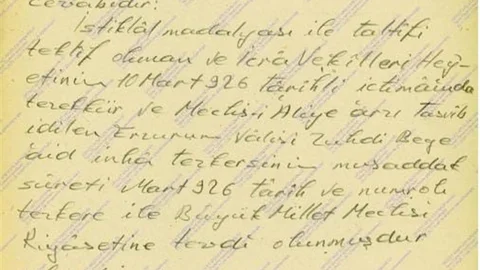 cevabıdır:
İstiklâl madalyası ile taltifi
teklif olunan ve İcrâ Vekilleri Hey-
etinin 10 Mart 926 târihli ictimâında
tezekkür ve Meclis-i Âliye arzı tasvîb
idilen Erzurum Vâlisi Zühdi Beye
âid inhâ tezkersinin musaddak
sûreti Mart 926 târih ve numrolı
tezkere ile Büyük Millet Meclisi
Riyâsetine tevdi olunmuşdur